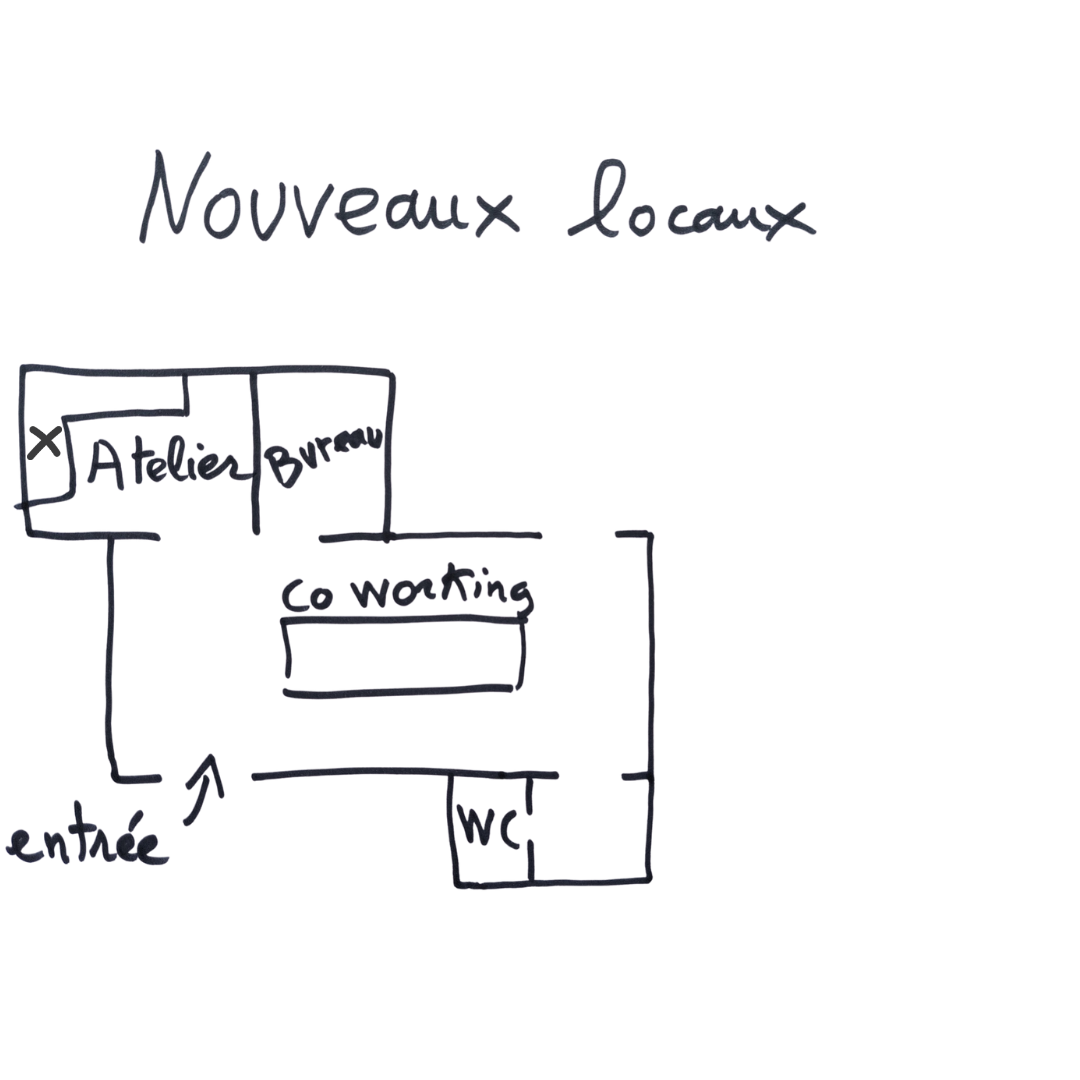 Nouveaux locaux
Atelier
Bureau
Co working
WC
entrée